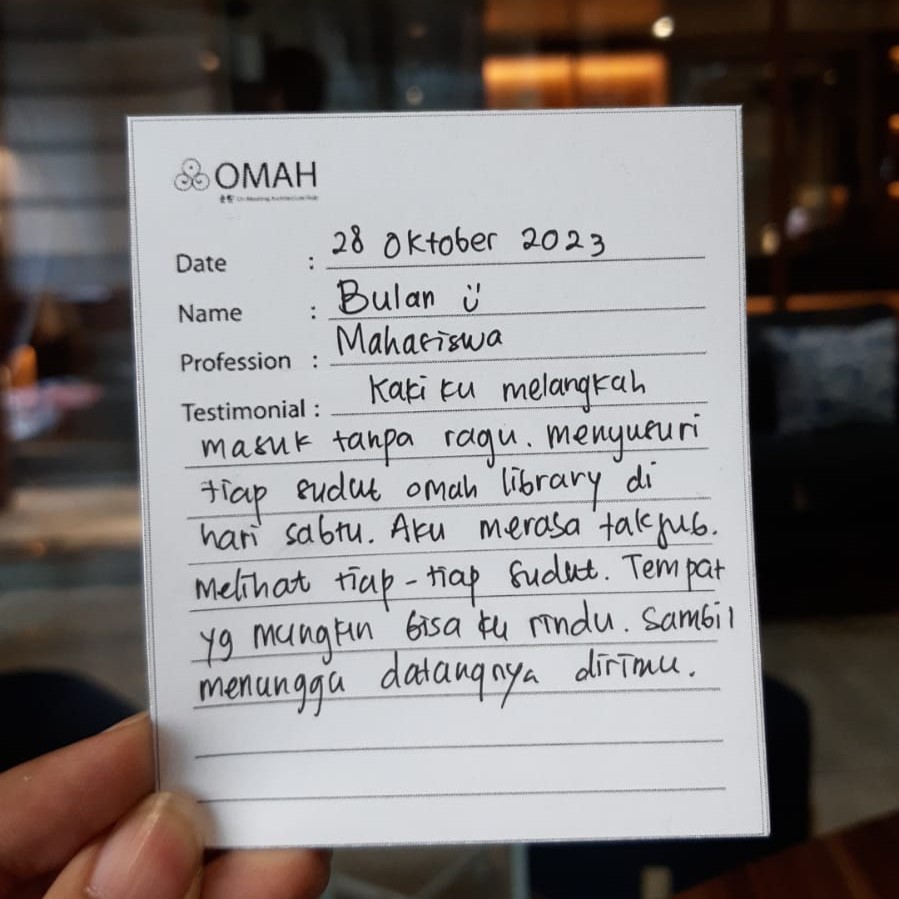 OMAH
Date : 28 Oktober 2023
Name : Bulan
Profession : Mahasiswa
Testimonial : Kaki ku melangkah
masuk tanpa ragu. menyusuri
tiap sudut omah library di
hari sabtu. Aku merasa takjub.
Melihat tiap-tiap sudut. Tempat
yg mungkin bisa ku rindu. Sambil
menunggu datangnya dirimu.